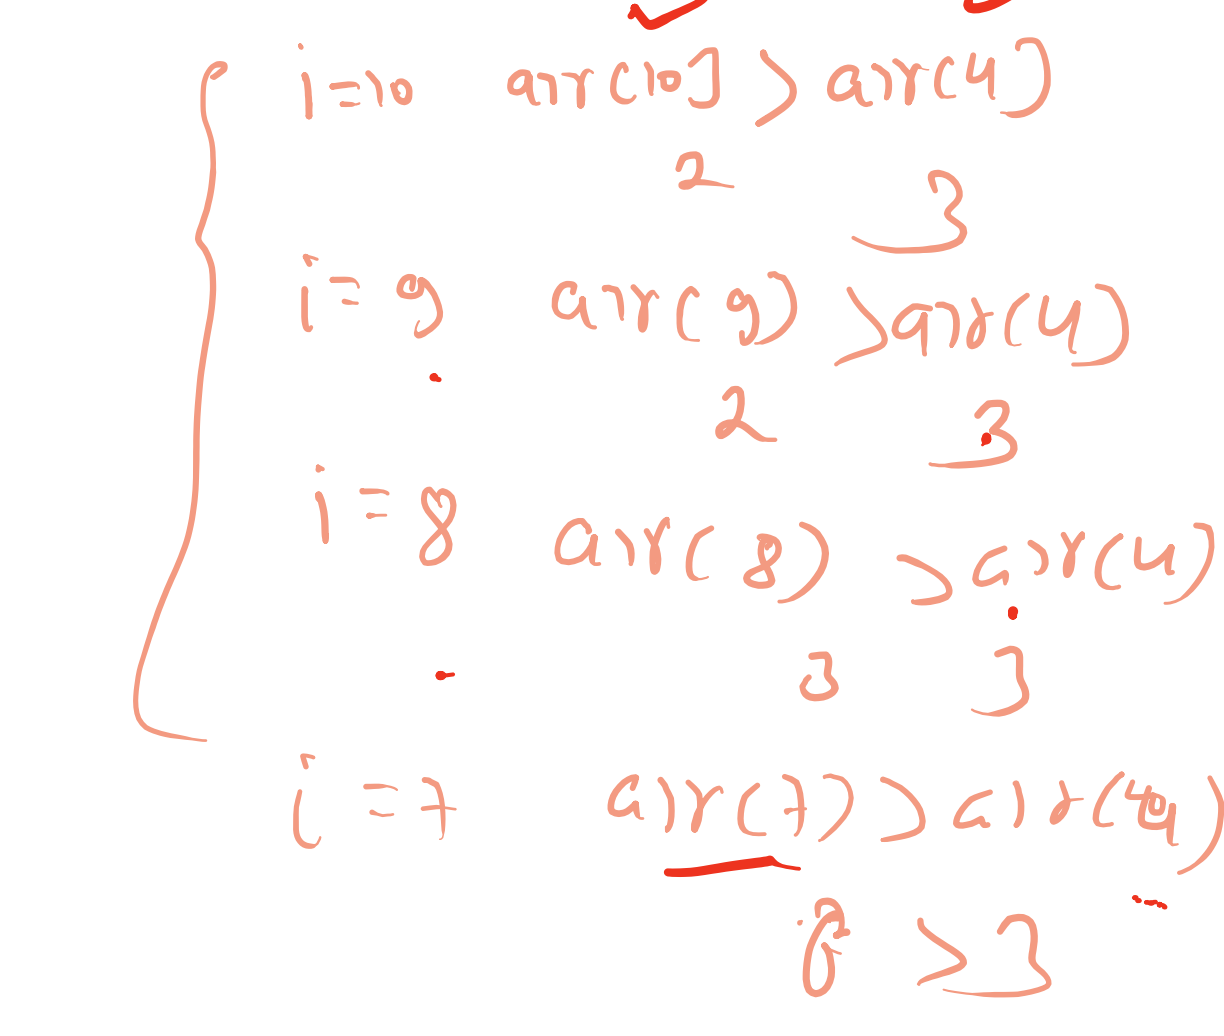 i=10 arr(10] > arr(4)
2 3
i=9 arr(9) > arr(4)
2 3
i=8 arr(8) > arr(4)
3 3
i=7 arr(7) > arr(4)
> 3